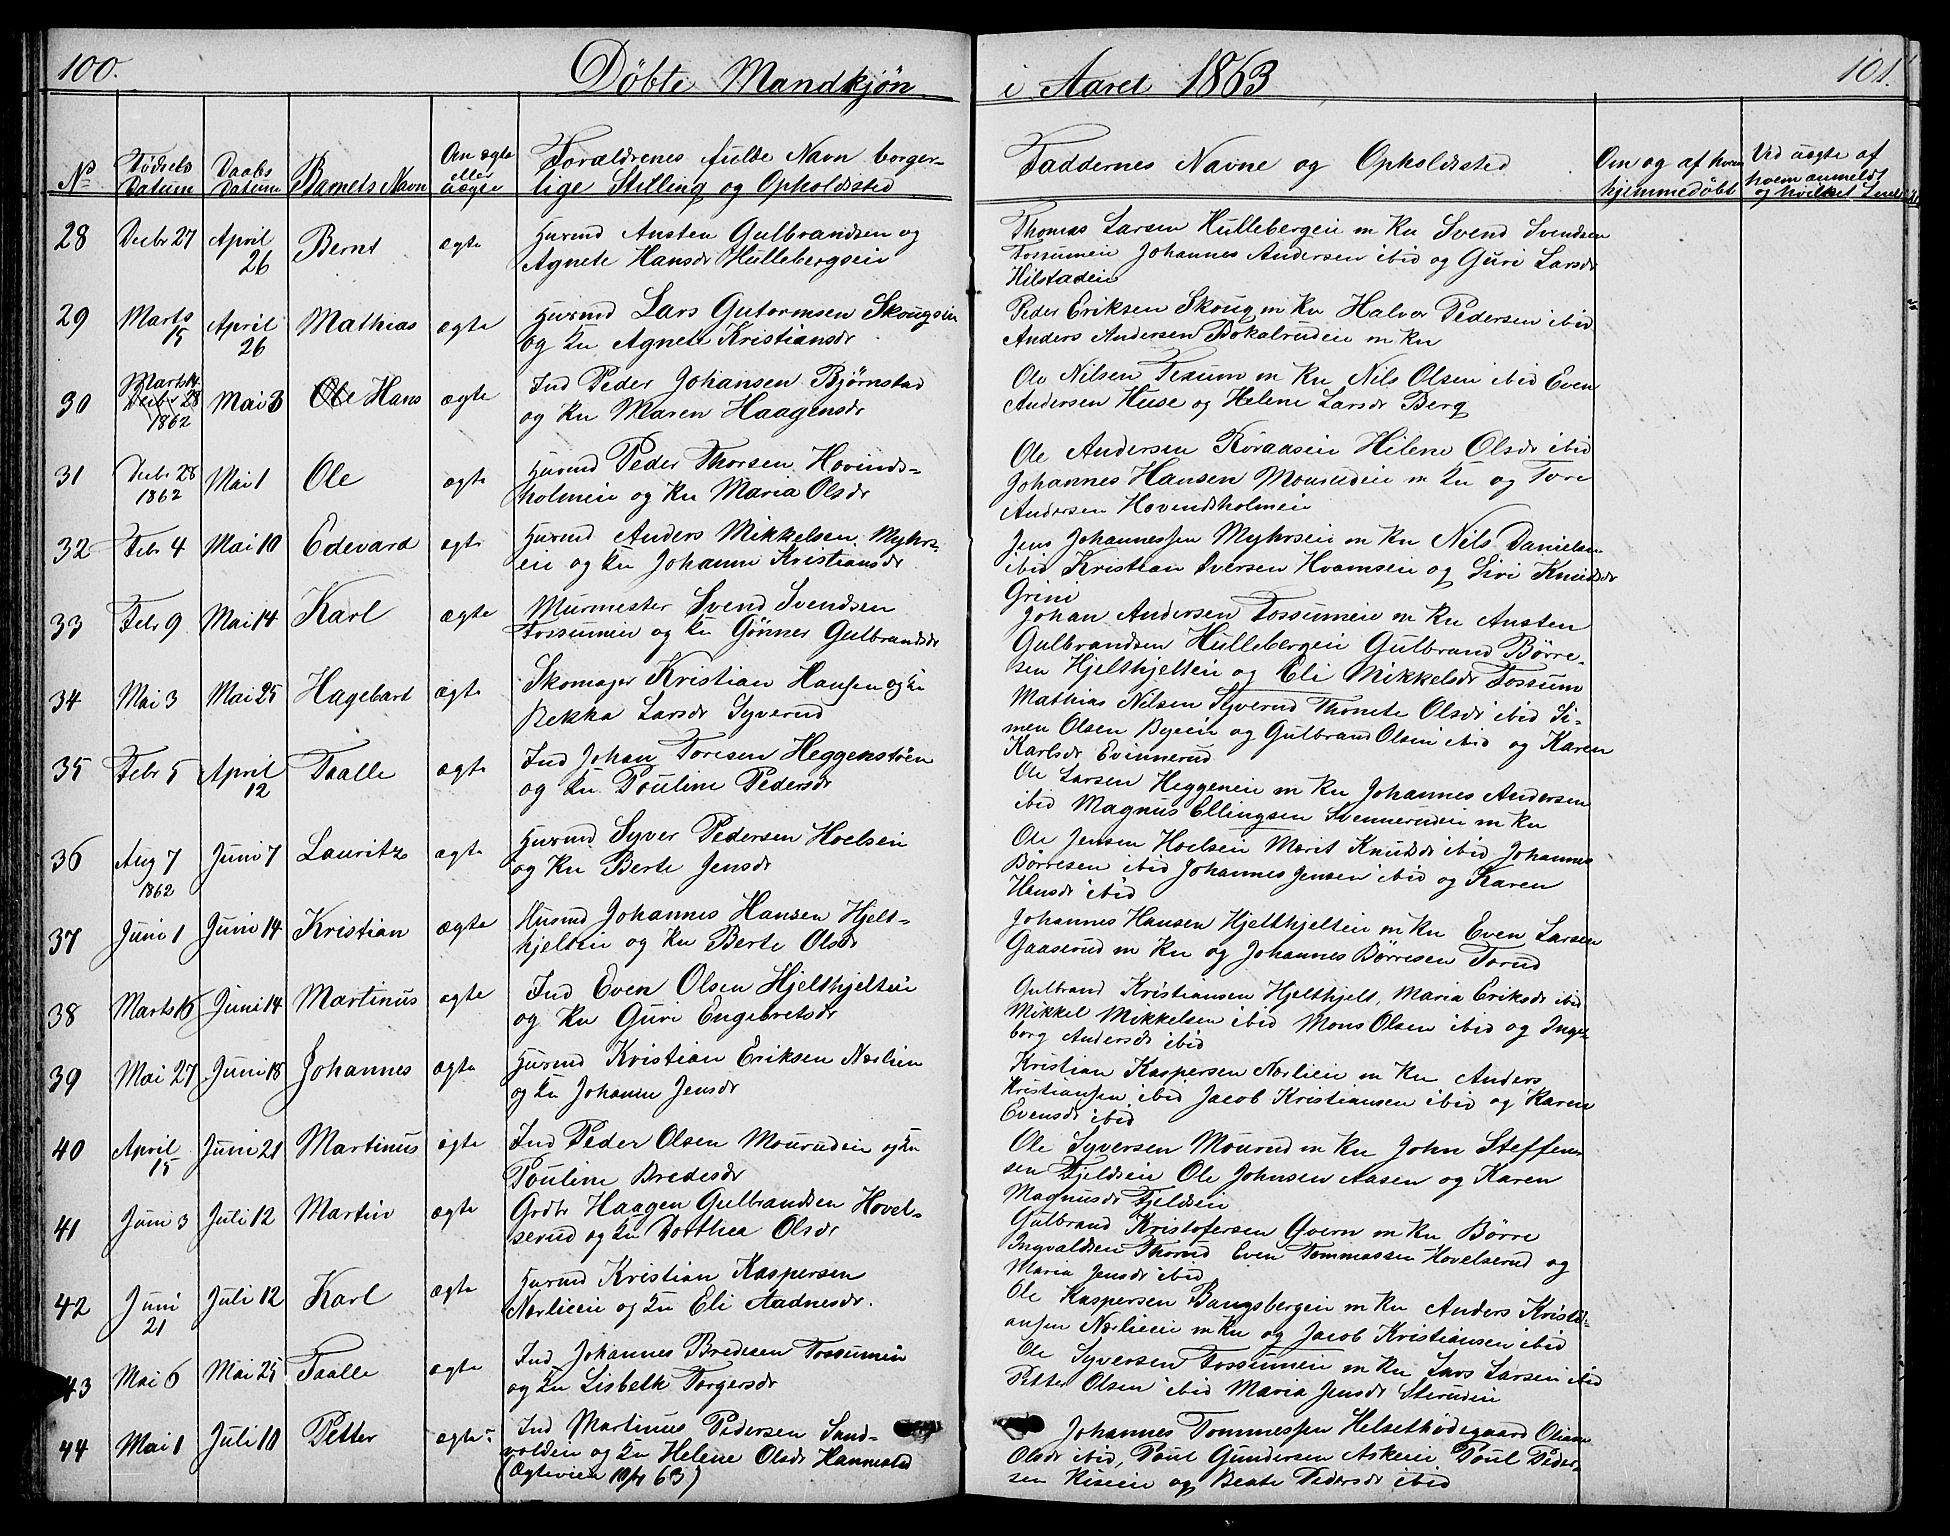 100.
Døbte Mandkjøn
i Aaret 1863
101.
No
Fødsels Datum
Daabs Datum
Barnets Navn
Om ægte eller uægte
Forældrenes fulde Navn borger-
lige Stilling og Opholdssted
Faddernes Navne og Opholdssted
Om og af hvem
hjemmedøbt
Ved uægte af
hvem anmeldt
og hvilket
28 Decbr 27 April 26 Bernt ægte
Husmd Austen Gulbrandsen og
Agnete Hansdr Hullebergseie
Thomas Larsen Hullebergeie m Ku Svend Svendsen
Fossumeie Johannes Andersen ibid og Guri Larsdr
Hilstadeie
29 Marts 15 April 26 Mathias ægte
Husmd Lars Gutormsen Skougseie
og Ku Agnete Kristiansdr
Peder Eriksen Skoug m Ku Halvor Pedersen ibid
Anders Andersen Bokalrudeie m Ku
30 Marts 14 Decbr 28 1862 Mai 3 Ole Hans ægte
Ind Peder Johansen Bjørnstad
og Ku Maren Haagensdr
Ole Nilsen Texum m Ku Nils Olsen ibid Even
Andersen Huse og Helene Larsdr Berg
31 Decbr 28 1862 Mai 1 Ole ægte
Husmd Peder Thorsen Hovinds-
holmeie og Ku Maria Olsdr
Ole Andersen Koraaseie Hilene Olsdr ibid
Johannes Hansen Mourudeie m Ku og Tore
Andersen Hovendsholmeie
32 Febr 4 Mai 10 Edevard ægte
Husmd Anders Mikkelsen Myhrs-
eie og Ku Johanne Kristiansdr
Jens Johannessen Myhrseie m Ku Nils Danielsen
ibid Kristian Iversen Hvamseie og Siri Knudsdr
Grini
33 Febr 9 Mai 14 Karl ægte
Murmester Svend Svendsen
Fossumeie og Ku Gønner Gulbrandsdr
Johan Andersen Fossumeie m Ku Austen
Gulbrandsen Hullebergeie Gulbrand Børre-
sen Hjelthjelteie og Eli Mikkelsdr Fossum
34 Mai 3 Mai 25 Hagebart ægte
Skomager Kristian Hansen og Ku
Rekka Larsdr Syverud
Mathias Nilsen Syverud Thonete Olsdr ibid Si-
men Olsen Byeie og Gulbrand Olsen ibid og Karen
Karlsdr Evinnerud
35 Febr 5 April 12 Taalle ægte
Ind Johan Toresen Heggenstøen
og Ku Pouline Pedersdr
Ole Larsen Heggeneie m Ku Johannes Andersen
ibid Magnus Ellingsen Svennerudeie m Ku
36 Aug 7 1862 Juni 7 Lauritz ægte
Husmd Syver Pedersen Hoelseie
og Ku Berte Jensdr
Ole Jensen Hoelseie Marit Knudsdr ibid Johannes
Børresen ibid Johannes Jensen ibid og Karen
Hansdr ibid
37 Juni 1 Juni 14 Kristian ægte
Husmd Johannes Hansen Hjelt-
hjelteie og Ku Berte Olsdr
Johannes Hansen Hjelthjelteie m Ku Even Larsen
Gaaserud m Ku og Johannes Børresen Torud
38 Marts 16 Juni 14 Martinus ægte
Ind Even Olsen Hjelthjelteie
og Ku Guri Engebretsdr
Gulbrand Kristiansen Hjelthjelt, Maria Eriksdr ibid
Mikkel Mikkelsen ibid Mons Olsen ibid og Inge-
borg Andersdr ibid
39 Mai 27 Juni 18 Johannes ægte
Husmd Kristian Eriksen Nærlieie
og Ku Johanne Jensdr
Kristian Kaspersen Nærlieie m Ku Anders
Kristiansen ibid Jacob Kristiansen ibid og Karen
Evensdr ibid
40 April 15 Juni 21 Martinus ægte
Ind Peder Olsen Mourudeie og Ku
Pouline Bredesdr
Ole Syversen Mourud m Ku John Steffen-
sen Fjeldseie Ole Johnsen Aasen og Karen
Magnusdr Fjeldseie
41 Juni 3 Juli 12 Martin ægte
Grdbr Haagen Gulbrandsen Hovel-
serud og Ku Dorthea Olsdr
Gulbrand Kristofersen Qvern m Ku Børre
Ingvaldsen Thorud Even Tommassen Hovelserud og
Maria Jensdr ibid
42 Juni 21 Juli 12 Karl ægte
Husmd Kristian Kaspersen
Nærlieeie og Ku Eli Aadnesdr.
Ole Kaspersen Bangsbergeie m Ku Anders Kristi-
ansen Nærlieeie m Ku og Jacob Kristiansen ibid
43 Mai 6 Mai 25 Taalle ægte
Ind Johannes Bredesen Fossumeie
og Ku Lisbeth Torgersdr
Ole Syversen Fossumeie m Ku Lars Larsen ibid
Petter Olsen ibid Maria Jensdr Sterudeie
44 Mai 1 Juli 10 Petter ægte
Ind Martinus Pedersen Sand-
voldeie og Ku Helene Olsdr Hannestad
(Ægteviede 10/4 63)
Johannes Tommessen Helsethødegaard Oliane
Olsdr ibid, Poul Gundersen Askeie Poul Peder-
sen Kiseie og Beate Pedersdr ibid